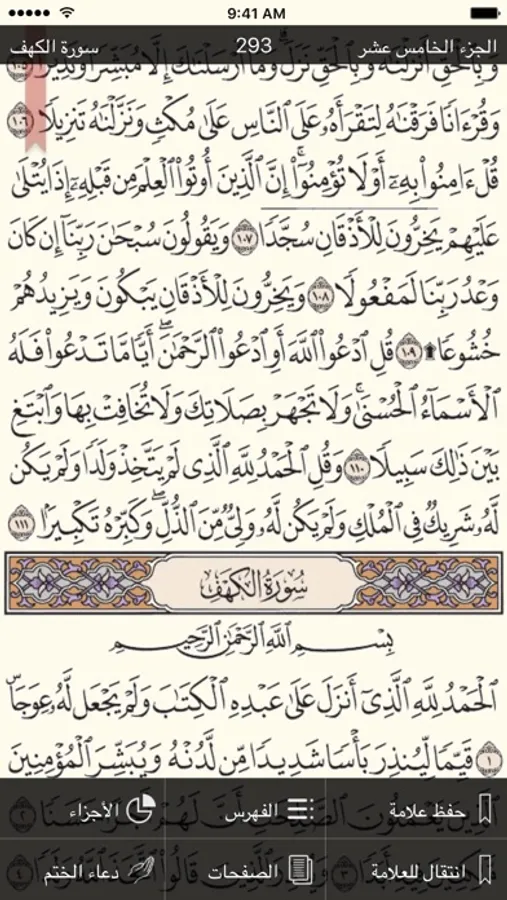 9:41 AM
الجزء الخامس عشر 293 سورة الكهف
وَبِالْحَقِّ أَنزَلْنَاهُ وَبِالْحَقِّ نَزَلَ وَمَا أَرْسَلْنَاكَ إِلَّا مُبَشِّرًا وَنَذِيرًا ١٠٥
وَقُرْءَانًا فَرَقْنَاهُ لِتَقْرَأَهُ عَلَى النَّاسِ عَلَىٰ مُكْثٍ وَنَزَّلْنَاهُ تَنزِيلًا ١٠٦
قُلْ ءَامِنُوا بِهِ أَوْ لَا تُؤْمِنُوا إِنَّ الَّذِينَ أُوتُوا الْعِلْمَ مِن قَبْلِهِ إِذَا يُتْلَىٰ
عَلَيْهِمْ يَخِرُّونَ لِلْأَذْقَانِ سُجَّدًا ١٠٧ وَيَقُولُونَ سُبْحَٰنَ رَبِّنَا إِن كَانَ
وَعْدُ رَبِّنَا لَمَفْعُولًا ١٠٨ وَيَخِرُّونَ لِلْأَذْقَانِ يَبْكُونَ وَيَزِيدُهُمْ
خُشُوعًا ۩ ١٠٩ قُلِ ادْعُوا اللَّهَ أَوِ ادْعُوا الرَّحْمَٰنَ أَيًّا مَّا تَدْعُوا فَلَهُ
الْأَسْمَاءُ الْحُسْنَىٰ وَلَا تَجْهَرْ بِصَلَاتِكَ وَلَا تُخَافِتْ بِهَا وَابْتَغِ
بَيْنَ ذَٰلِكَ سَبِيلًا ١١٠ وَقُلِ الْحَمْدُ لِلَّهِ الَّذِي لَمْ يَتَّخِذْ وَلَدًا وَلَمْ يَكُن
لَّهُ شَرِيكٌ فِي الْمُلْكِ وَلَمْ يَكُن لَّهُ وَلِيٌّ مِّنَ الذُّلِّ وَكَبِّرْهُ تَكْبِيرًا ١١١
سُورَةُ الْكَهْفِ
بِسْمِ اللَّهِ الرَّحْمَٰنِ الرَّحِيمِ
الْحَمْدُ لِلَّهِ الَّذِي أَنزَلَ عَلَىٰ عَبْدِهِ الْكِتَٰبَ وَلَمْ يَجْعَل لَّهُ عِوَجَا
١ قَيِّمًا لِّيُنذِرَ بَأْسًا شَدِيدًا مِّن لَّدُنْهُ وَيُبَشِّرَ الْمُؤْمِنِينَ
حفظ علامة الفهرس الأجزاء
انتقال للعلامة الصفحات دعاء الختم